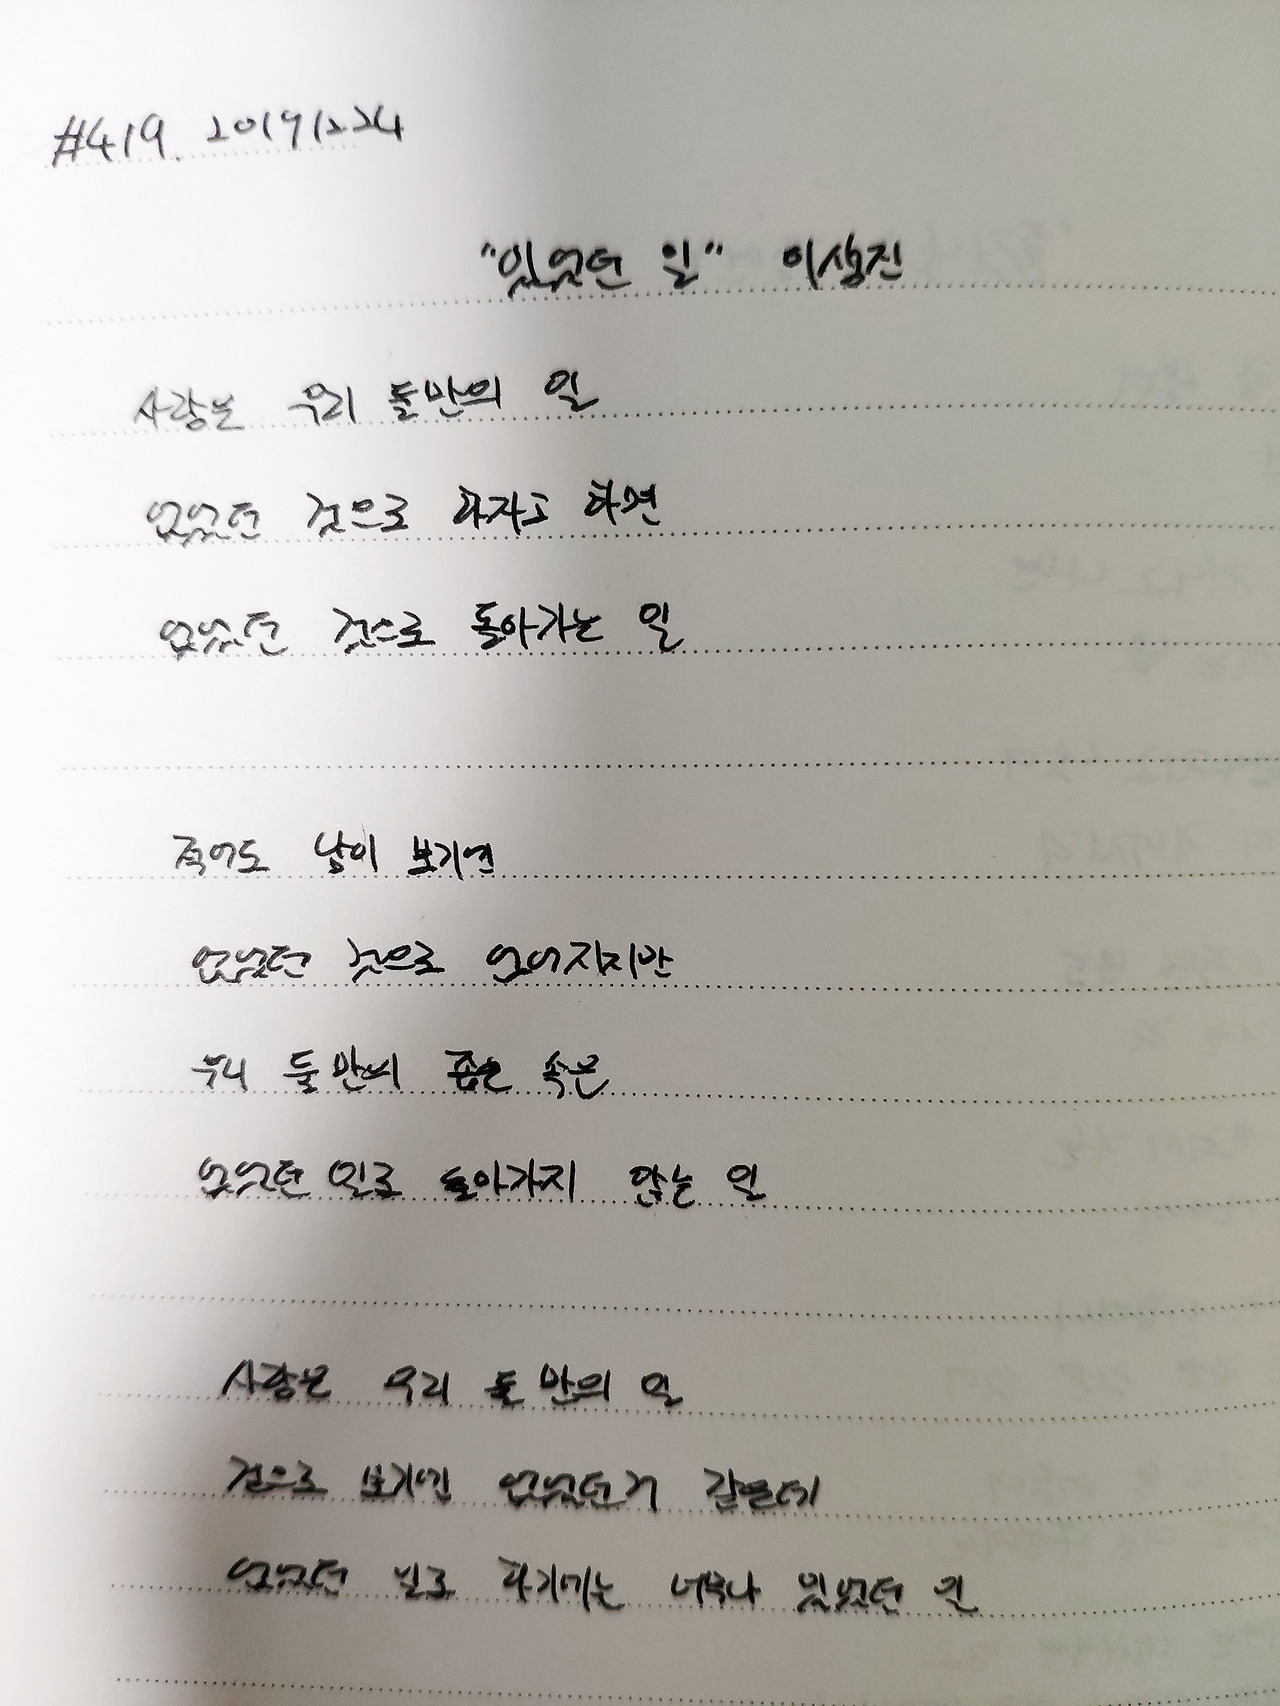 #419. 20191224
"있었던 일" 이생진
사랑은 우리 둘만의 일
없었던 것으로 하자고 하면
없었던 것으로 돌아가는 일
적어도 남이 보기엔
없었던 것으로 없어지지만
우리 둘만의 좁은 속은
없었던 일로 돌아가지 않는 일
사랑은 우리 둘만의 일
겉으로 보기엔 없었던거 같은데
없었던 일로 하기에는 너무나 있었던 일